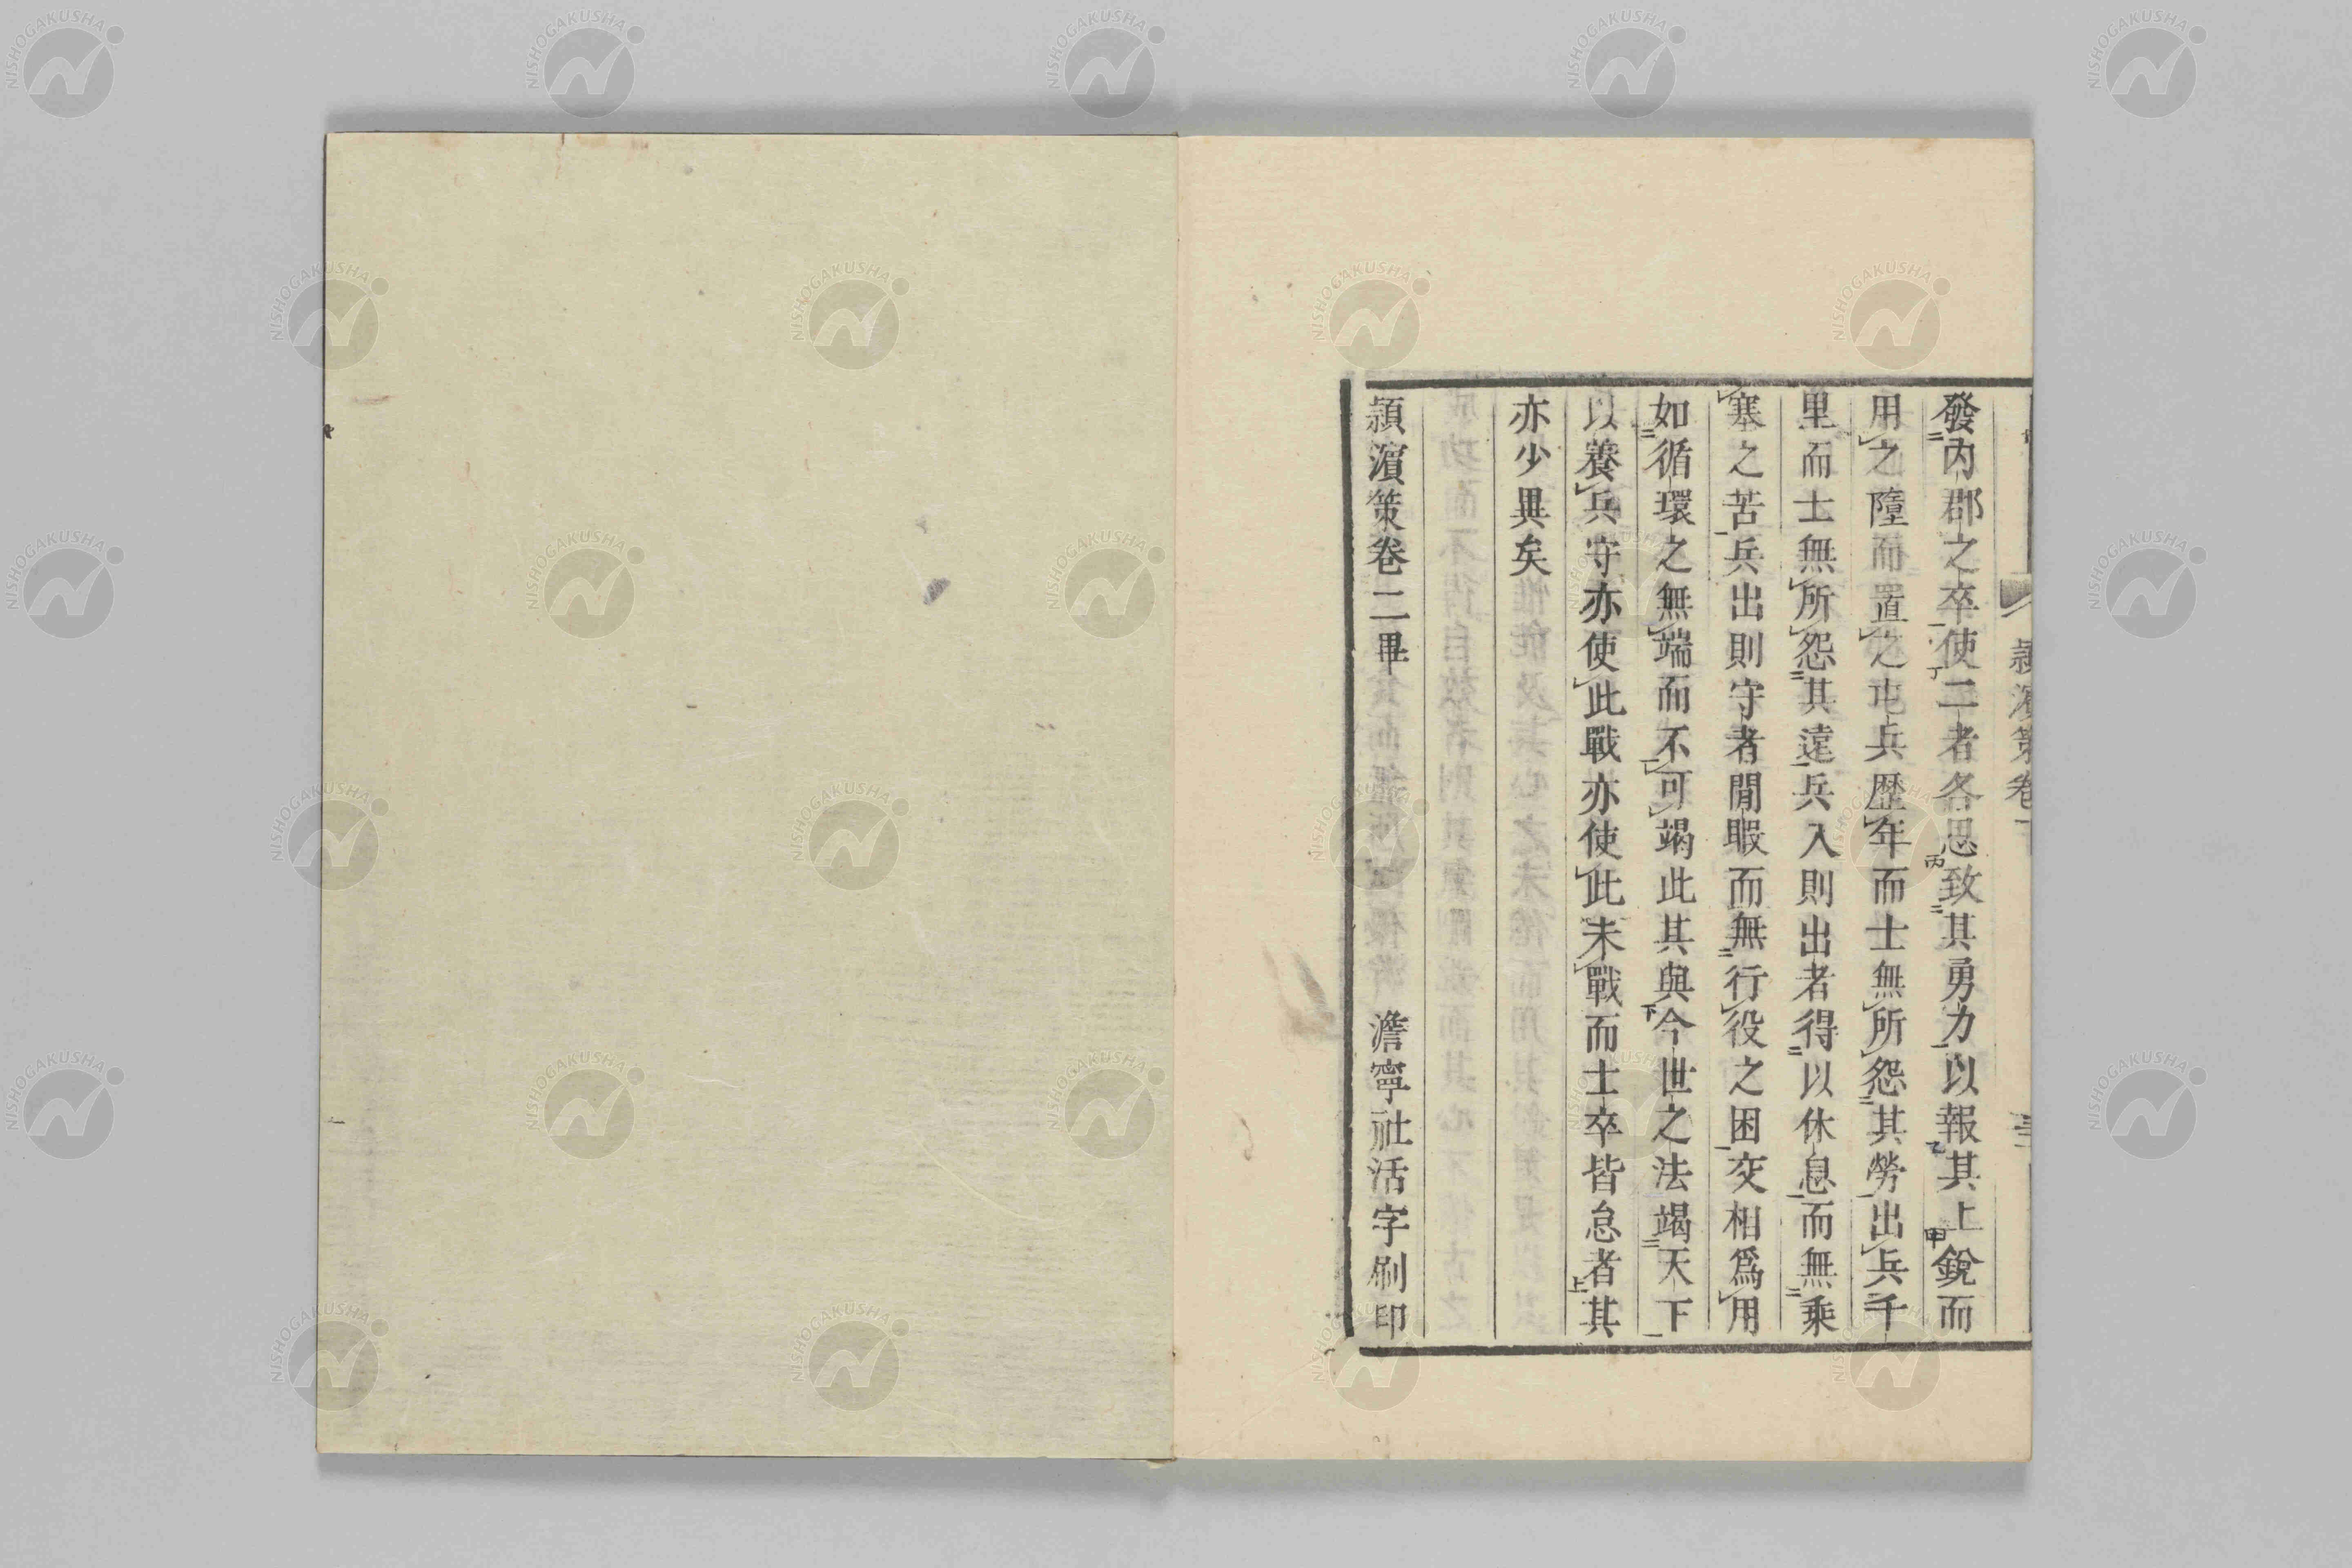 發內郡之卒使二者各思致其勇力以報其上銳而
用之墮而置之屯兵歷年而士無所怨其勞出兵千
里而士無所怨其遠兵入則出者得以休息而無乘
塞之苦兵出則守者閒暇而無行役之困交相爲用
如循環之無端而不可竭此其與今世之法竭天下
以養兵守亦使此戰亦使此未戰而士卒皆怠者其
亦少異矣
潁濱策卷二畢 澹寧社活字刷印